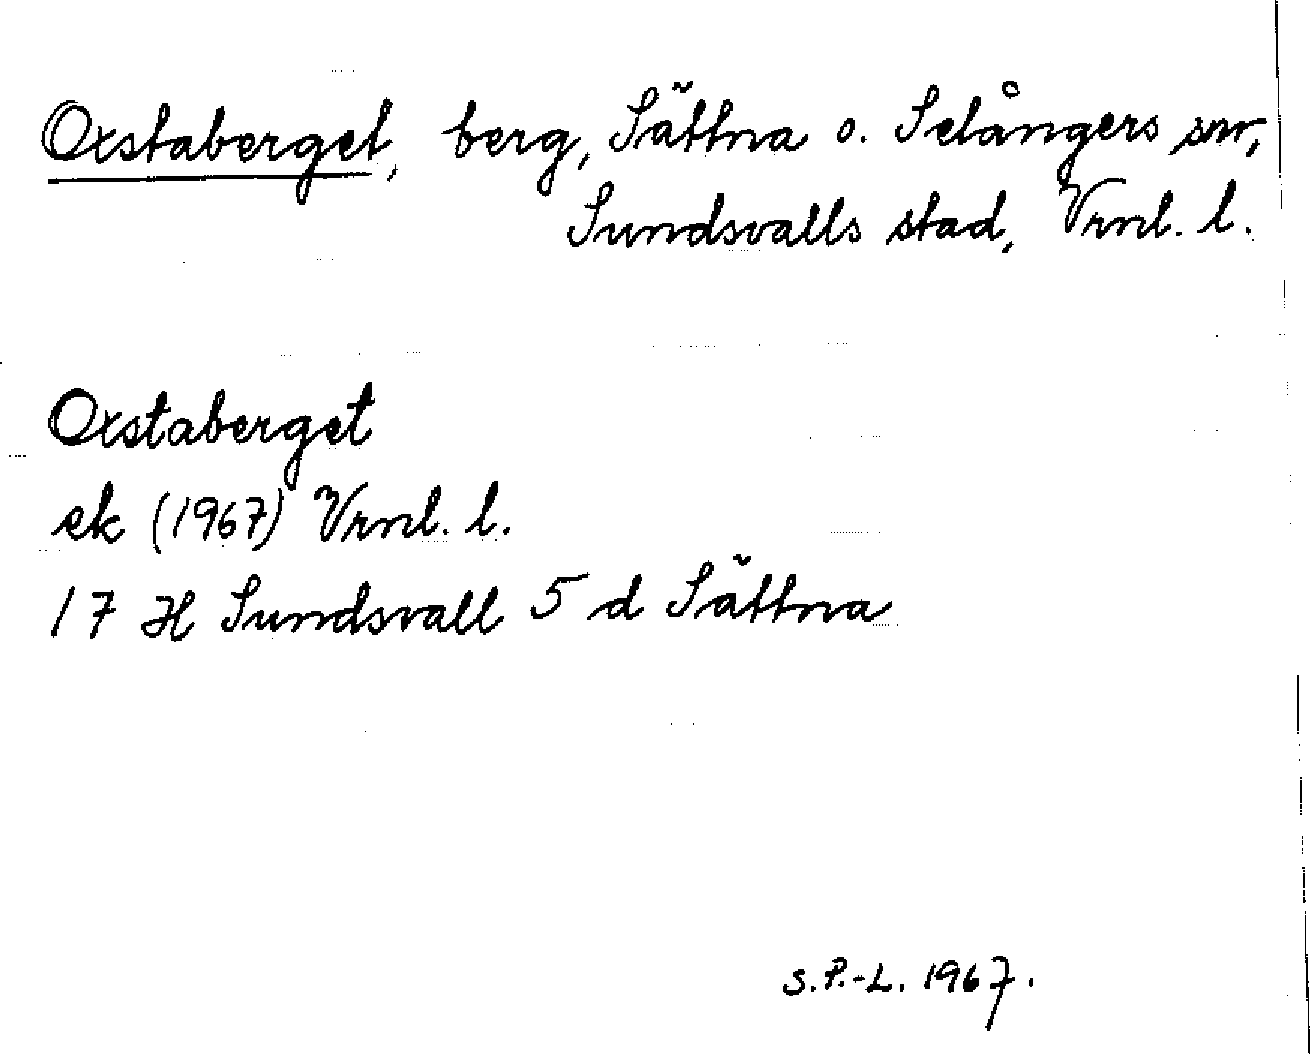 Oxstaberget, berg, Sättna o. Selångers snr,
Sundsvalls stad, Vrnl. l.
Oxstaberget
ek (1967) Vrnl. l.
17 H Sundsvall 5 d Sättna
S.P.-L. 1967.